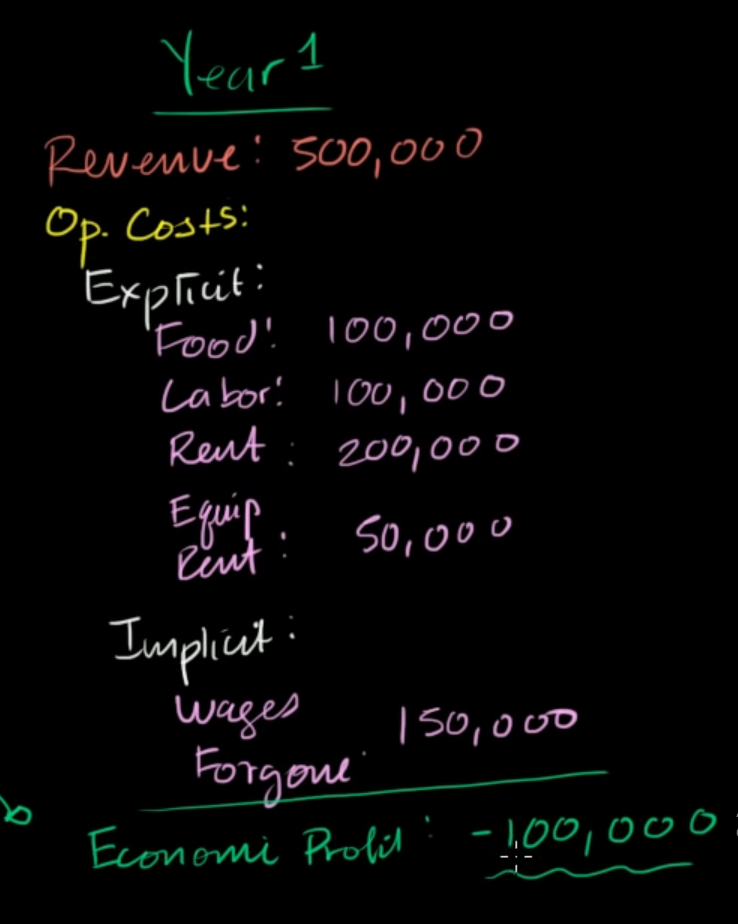 Year 1
Revenue: 500,000
Op. Costs:
Explicit:
Food: 100,000
Labor: 100,000
Rent: 200,000
Equip
Rent: 50,000
Implicit:
Wages
Forgone 150,000
Economic Profit: -100,000